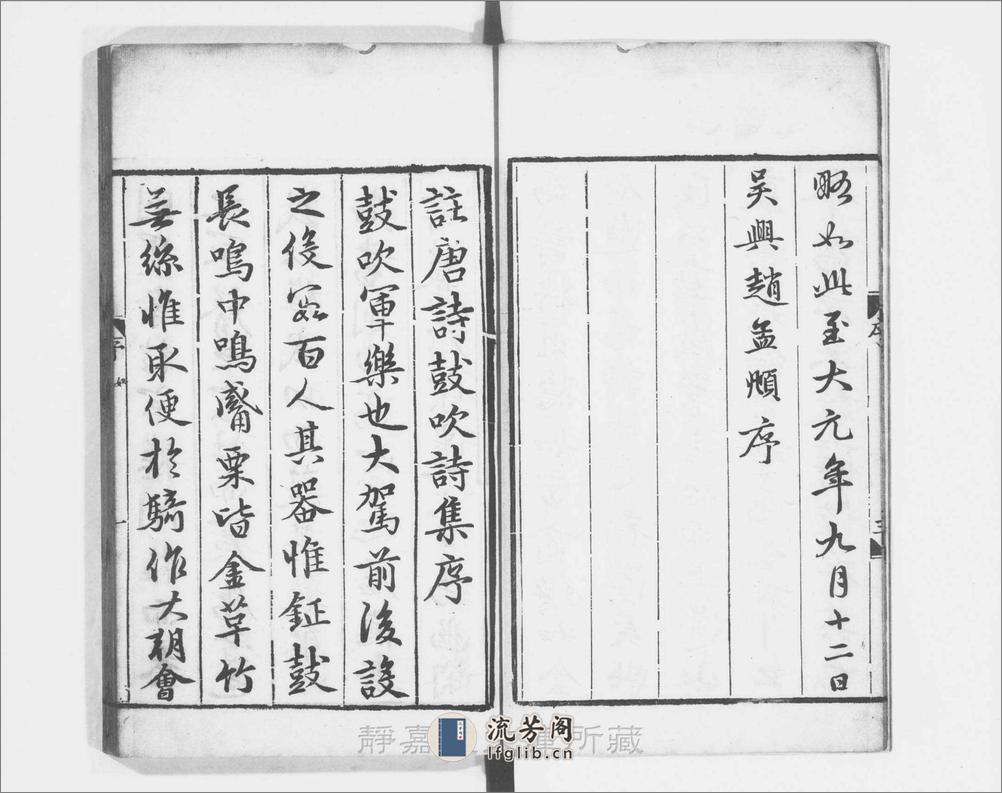 略如此至大元年九月十二日
吳興趙孟頫序
序
三
註唐詩鼓吹詩集序
鼓吹軍樂也大駕前後設
之役數百人其器惟鉦鼓
長鳴中鳴觱栗皆金革竹
無絲惟取便於騎作大朝會
序
如
一
靜嘉
所藏
流芳阁
lfglib.cn